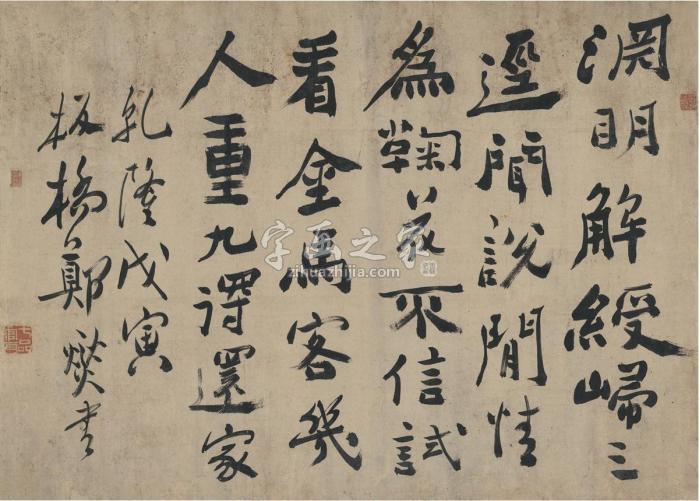 淵明解綬歸三
逕聞說閒情
為鞠花不信試
看金馬客幾
人重九得還家
乾隆戊寅
板橋鄭燮書
字画之家
zihuazhijia.com